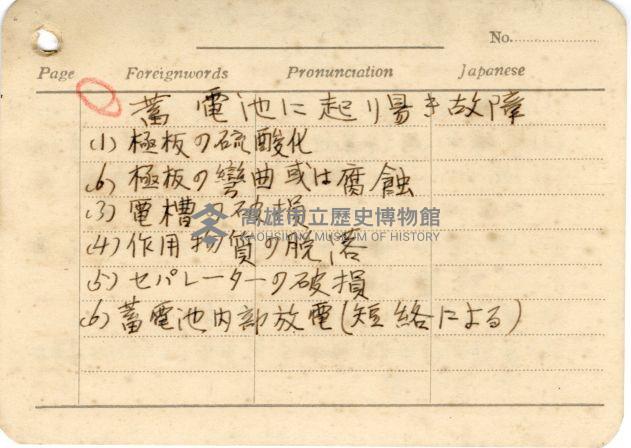 No.
Page Foreignwords Pronunciation Japanese
蓄電池に起り易き故障
(1) 極板の硫酸化
(2) 極板の彎曲或は腐蝕
(3) 電槽の破損
(4) 作用物質の脱落
(5) セパレーターの破損
(6) 蓄電池内部放電(短絡による)
高雄市立歷史博物館
KAOHSIUNG MUSEUM OF HISTORY